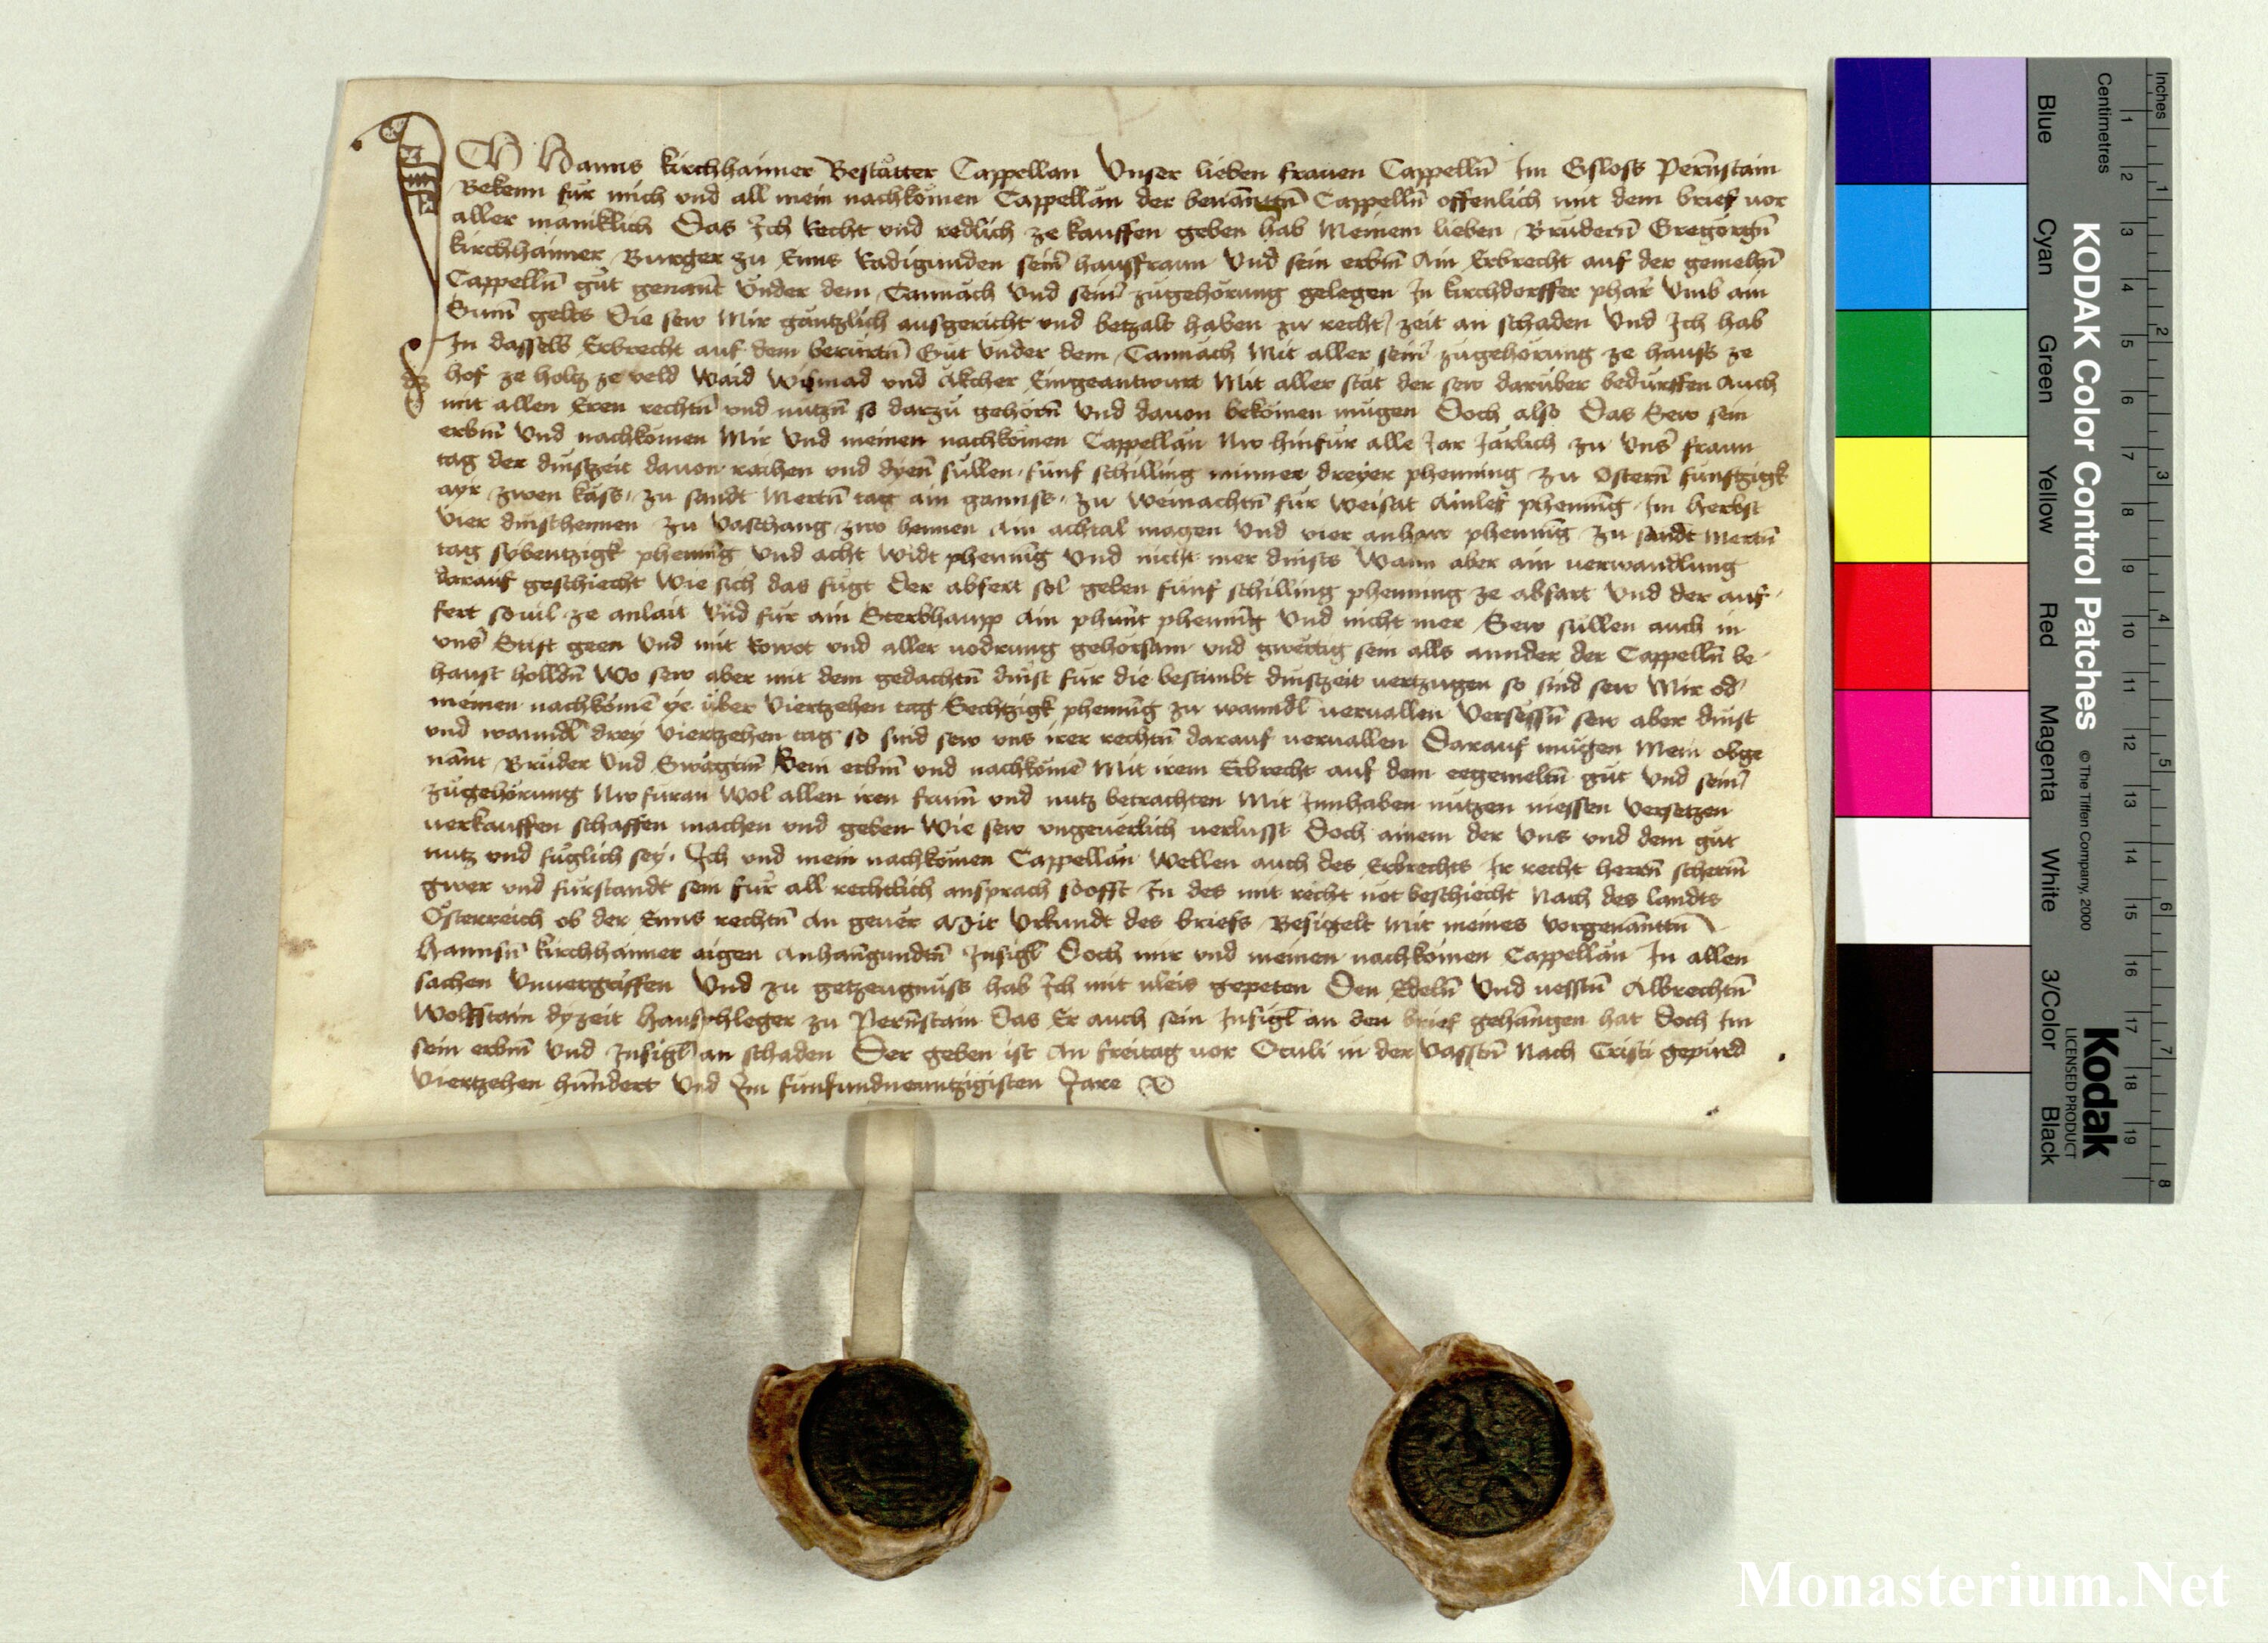 Ich Hanns kirchhaimer Bestätter Cappellan Unser lieben frauen Cappelln̄ Im Gsloss Pern̄stain
Bekenn für mich und all mein nachkomen Cappellän der benan̄ttn̄ Cappelln̄ offenlich mit dem brief vor
aller maniklich Das Ich Recht und redlich ze kauffen geben hab Meinem lieben Brudern̄ Gregorgn̄
kirchhaimer Burger zu Enns Radigunden sein̄ hausfraun Und sein erbm̄ Ain Erbrecht auf der gemeltn̄
Cappelln̄ gut genan̄t Under dem Tannach Und sein̄ zugehorung gelegen In kirchdorffer phar Umb ain
Sum̄ gelts Die sew Mir gäntzlich ausgericht und betzalt haben zu recht zeit an schaden Und Ich hab
In dasselb Erbrecht auf dem berurtn̄ Gut Under dem Tannach Mit aller sein̄ zugehorung ze hauss ze
hof ze holtz ze veld Waid Wismad und äkcher Eingeantwurt Mit aller stät der sew darüber bedurffen Auch
mit allen Eren rechtn̄ und nutzn̄ so darzu gehorn̄ Und dauon bekomen mugen Doch also Das Sew sein
erbm̄ Und nachkomen Mir Und meinen nachkomen Cappellän Nw hinfur alle Jar Järlich zu Uns̄ fraun
tag der dinstzeit dauon raihen und dyen̄ sullen funf schilling minner dreyer phenning zu Ostern̄ funftzigk
ayr zwen käss zu sandt Mertn̄ tag ain gannss zu Weinachtn̄ fur Weisat Ainlef phenni̅g Im herbst
Vier dinsthennen zu Vaschang zwo hennen Ain achtal magen Und vier anhaw phenni̅g zu sandt Mertn̄
tag sybentzigk pheni̅ng Und acht Widt phenni̅g Und nicht mer dinsts Wann aber ain verwandlung
darauf geschiecht Wie sich das fugt Der abfert sol geben funf schilling phenning ze abfart Und der auf
fert souil ze anlait Und fur ain Sterbhaupp Ain phunt phenni̅g Und nicht mer Sew sullen auch in
uns̄ Stift geen Und mit Rowot und aller uodrung gehorsam und gwerttig sein alls annder der Cappelln̄ be
haust holldn̄ Wo sew aber mit dem gedachtn̄ dinst fur die bestimbt dinstzeit vertzugen so sind sew Mir od
meinen nachkomē ye über Viertzehen tag Sechtzigk phenni̅g zu wanndl veruallen Versessn̄ sew aber dinst
und wanndl drey Viertzehen tag so sind sew uns irer rechtn̄ darauf veruallen Darauf mugen Mein obge
nānt Bruder Und Swägrin̄ Sein erbm̄ und nachkomē Mit irem Erbrecht auf dem eegemeltn̄ gut Und sein̄
zugehorung Nw furan Wol allen iren frum̄ und nutz betrachten Mit Innhaben nutzen niessen Versetzen
verkauffen schaffen machen und geben Wie sew ungeuerlich verlusst Doch ainem der Uns und dem gut
nutz und fuglich sey Ich und mein nachkomen Cappellän Wellen auch des Erbrechts Ir recht herrn̄ scherm̄
gwer und furstandt sein fur all rechtlich ansprach sooft In des mit recht not beschiecht Nach des landts
Österreich ob der Enns rechtn̄ An geuer Mit Urkundt des briefs Besigelt Mit meines Vorgenan̄ttn̄
Hannsn̄ kirchhaimer aigen Anhangundtn̄ Insigl Doch mir und meinen nachkomen Cappellän In allen
sachen Unuergriffen Und zu getzeugnuss hab Ich mit vleis gepeten Den Edeln̄ Und vesstn̄ Albrechtn̄
Wolfstain dyzeit hausphleger zu Pern̄stain Das Er auch sein Insigl an den brief gehangen hat Doch Im
sein erbm̄ Und Insigl an schaden Der geben ist An freitag vor Oculi in der Vasstn̄ Nach Cristi gepurd
Viertzehen hundert Und Im funfundneuntzigisten Jare
Blue Cyan Green Yellow Red Magenta White 3/Color Black
KODAK Color Control Patches © The Tiffen Company, 2000
Kodak
LICENSED PRODUCT
Centimetres 1 2 3 4 5 6 7 8 9 10 11 12 13 14 15 16 17 18 19
Inches 1 2 3 4 5 6 7 8
Monasterium.Net